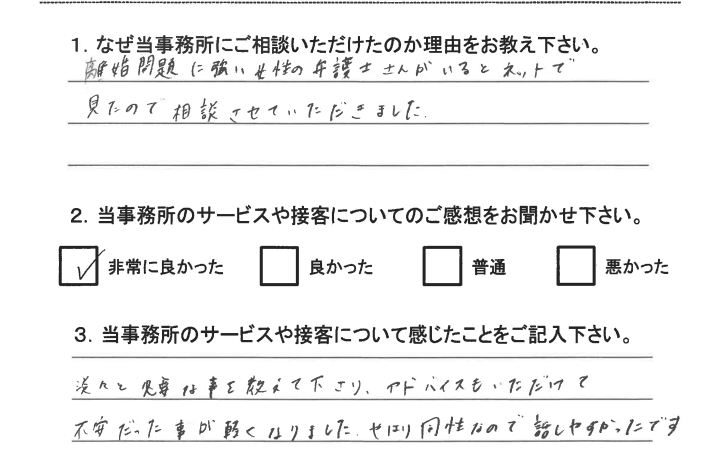 1. なぜ当事務所にご相談いただけたのか理由をお教え下さい。
離婚問題に強い女性の弁護士さんがいるとネットで
見たので相談させていただきました.
2. 当事務所のサービスや接客についてのご感想をお聞かせ下さい。
非常に良かった 良かった 普通 悪かった
3. 当事務所のサービスや接客について感じたことをご記入下さい。
淡々と必要な事を教えて下さり、アドバイスもいただけて
不安だった事が軽くなりました. やはり同性なので話しやすかったです